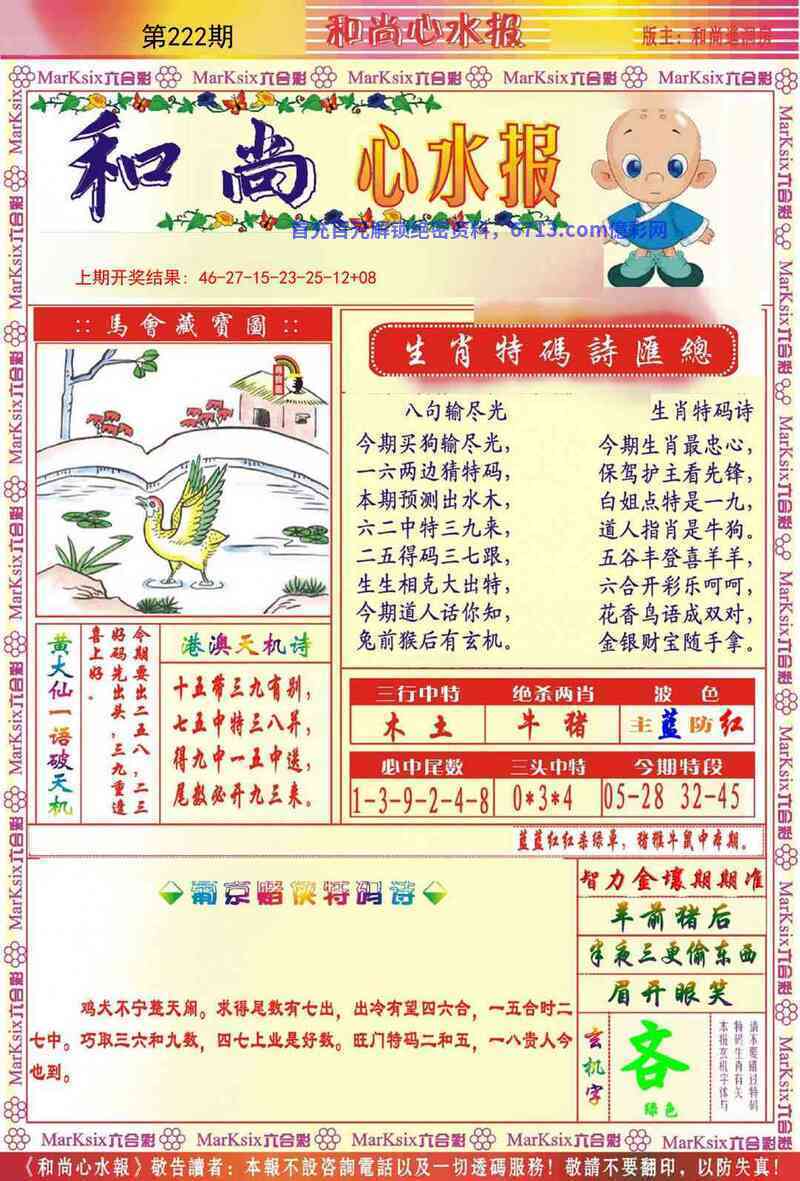 第222期
和尚心水报
版主：和尚进洞房
MarKsix六合彩 MarKsix六合彩 MarKsix六合彩 MarKsix六合彩 MarKsix六合彩
和尚 心水报
首充百元解锁绝密资料，6713.com
上期开奖结果：46-27-15-23-25-12+08
::馬會藏寶圖::
生肖特碼詩匯總
八句输尽光
今期买狗输尽光，
一六两边猜特码，
本期预测出水木，
六二中特三九来，
二五得码三七跟，
生生相克大出特，
今期道人话你知，
兔前猴后有玄机。
生肖特码诗
今期生肖最忠心，
保驾护主看先锋，
白姐点特是一九，
道人指肖是牛狗。
五谷丰登喜羊羊，
六合开彩乐呵呵，
花香鸟语成双对，
金银财宝随手拿。
黄大仙一语破天机
今期要出二五八，二三
好码先出头，三九重逢
喜上好。
港澳天机诗
十五带三九有别，
七五中特三八算，
得九中一五中送，
尾数必开九三来。
三行中特 绝杀两肖 波 色
木 土 牛 猪 主蓝防红
必中尾数 三头中特 今期特段
1-3-9-2-4-8 0*3*4 05-28 32-45
蓝蓝红红杀绿单，猪猴牛鼠中本期。
葡京赌侠特码诗
鸡犬不宁整天闹。求得尾数有七出，出冷有望四六合，一五合时二
七中。巧取三六和九数，四七上业是好数。旺门特码二和五，一八贵人今
也到。
智力金壤期期准
羊前猪后
半夜三更偷东西
眉开眼笑
玄机字
吝
绿色
请不要错过特码
特码生肖有关
本报玄机字体与
MarKsix六合彩 MarKsix六合彩 MarKsix六合彩 MarKsix六合彩 MarKsix六合彩
《和尚心水報》敬告讀者：本報不設咨詢電話以及一切透碼服務！敬請不要翻印，以防失真！